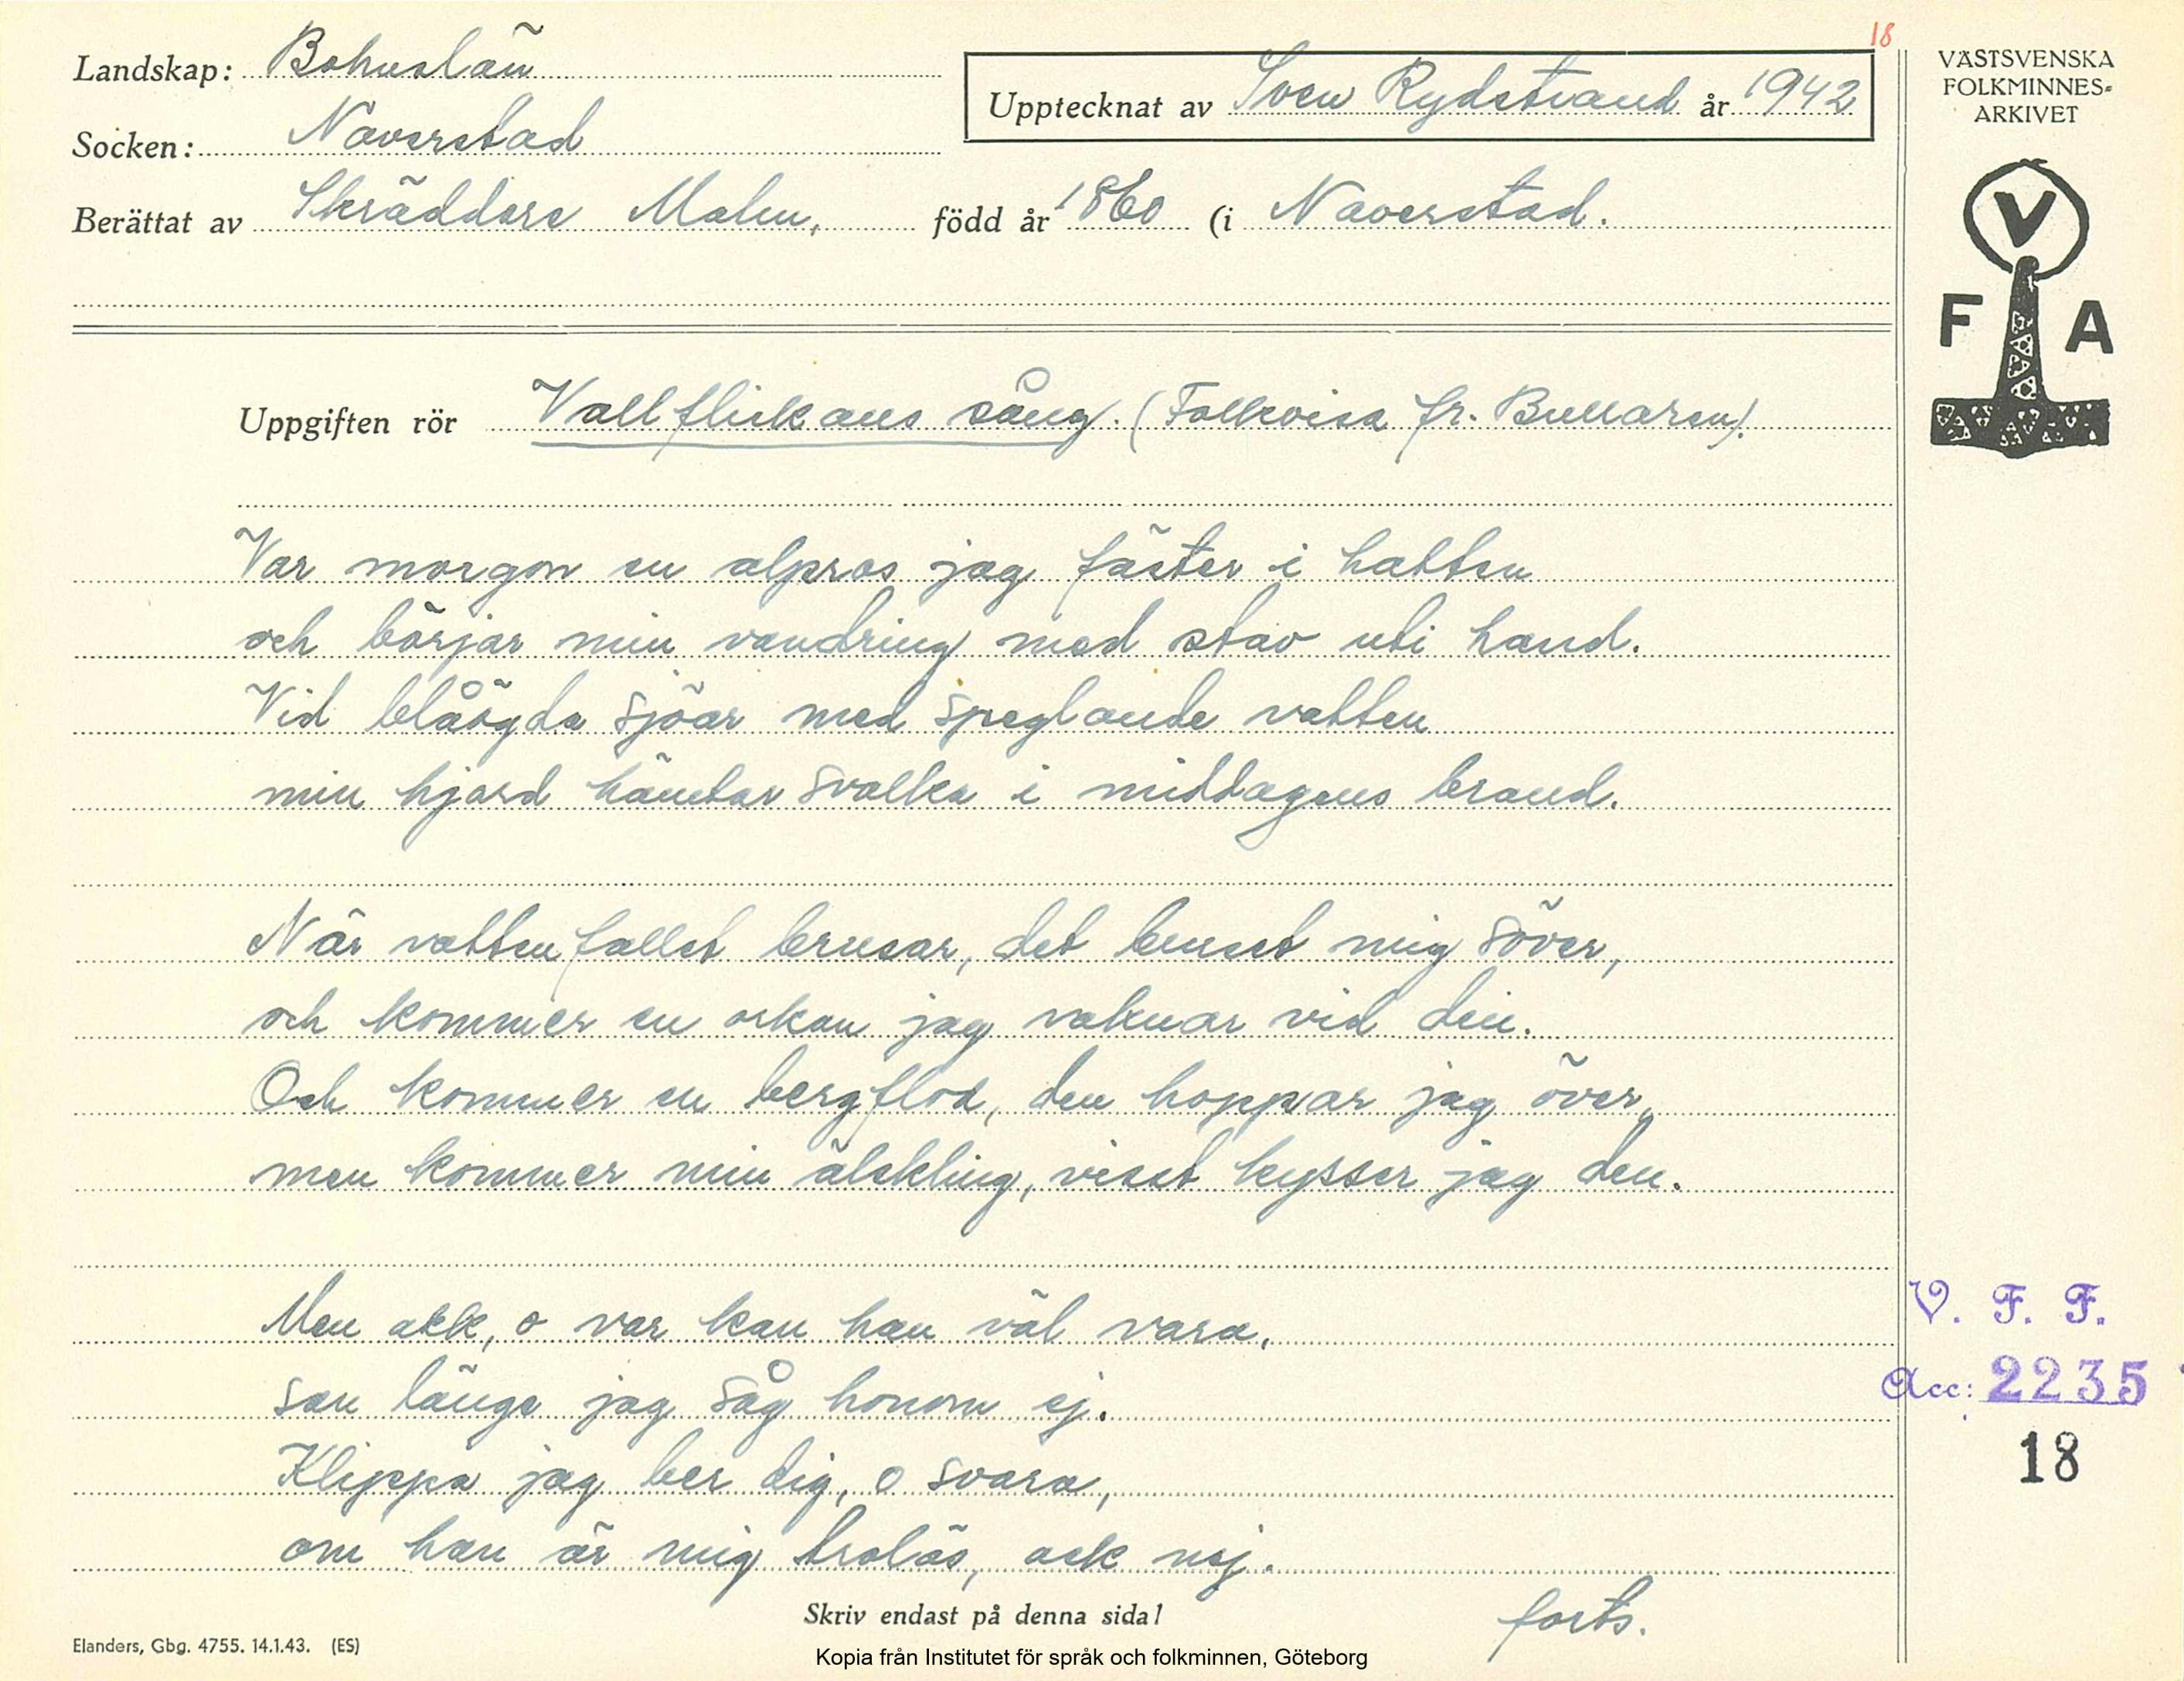 18
Landskap: Bohuslän
Upptecknat av Sven Rydstrand år 1942
Socken: Naverstad
Berättat av Skräddare Malm, född år 1860 (i Naverstad.
VÄSTSVENSKA
FOLKMINNES-
ARKIVET
V
F A
Uppgiften rör Vallflickans sång. (Folkvisa fr. Bullaren).
Var morgon en alpros jag fäster i hatten
och börjar min vandring med stav uti hand.
Vid blåögda sjöar med speglande vatten
min hjord hämtar svalka i middagens brand.
När vattenfallet brusar, det bruset mig söver,
och kommer en orkan jag vaknar vid den.
Och kommer en bergflod, den hoppar jag över,
men kommer min älskling, visst kysser jag den.
Men ack, o var kan han väl vara,
san länge jag såg honom ej.
Klippa jag ber dig, o svara,
om han är mig trolös, ack nej.
forts.
V. F. F.
Acc: 2235
18
Skriv endast på denna sida!
Elanders, Gbg. 4755. 14.1.43. (ES)
Kopia från Institutet för språk och folkminnen, Göteborg